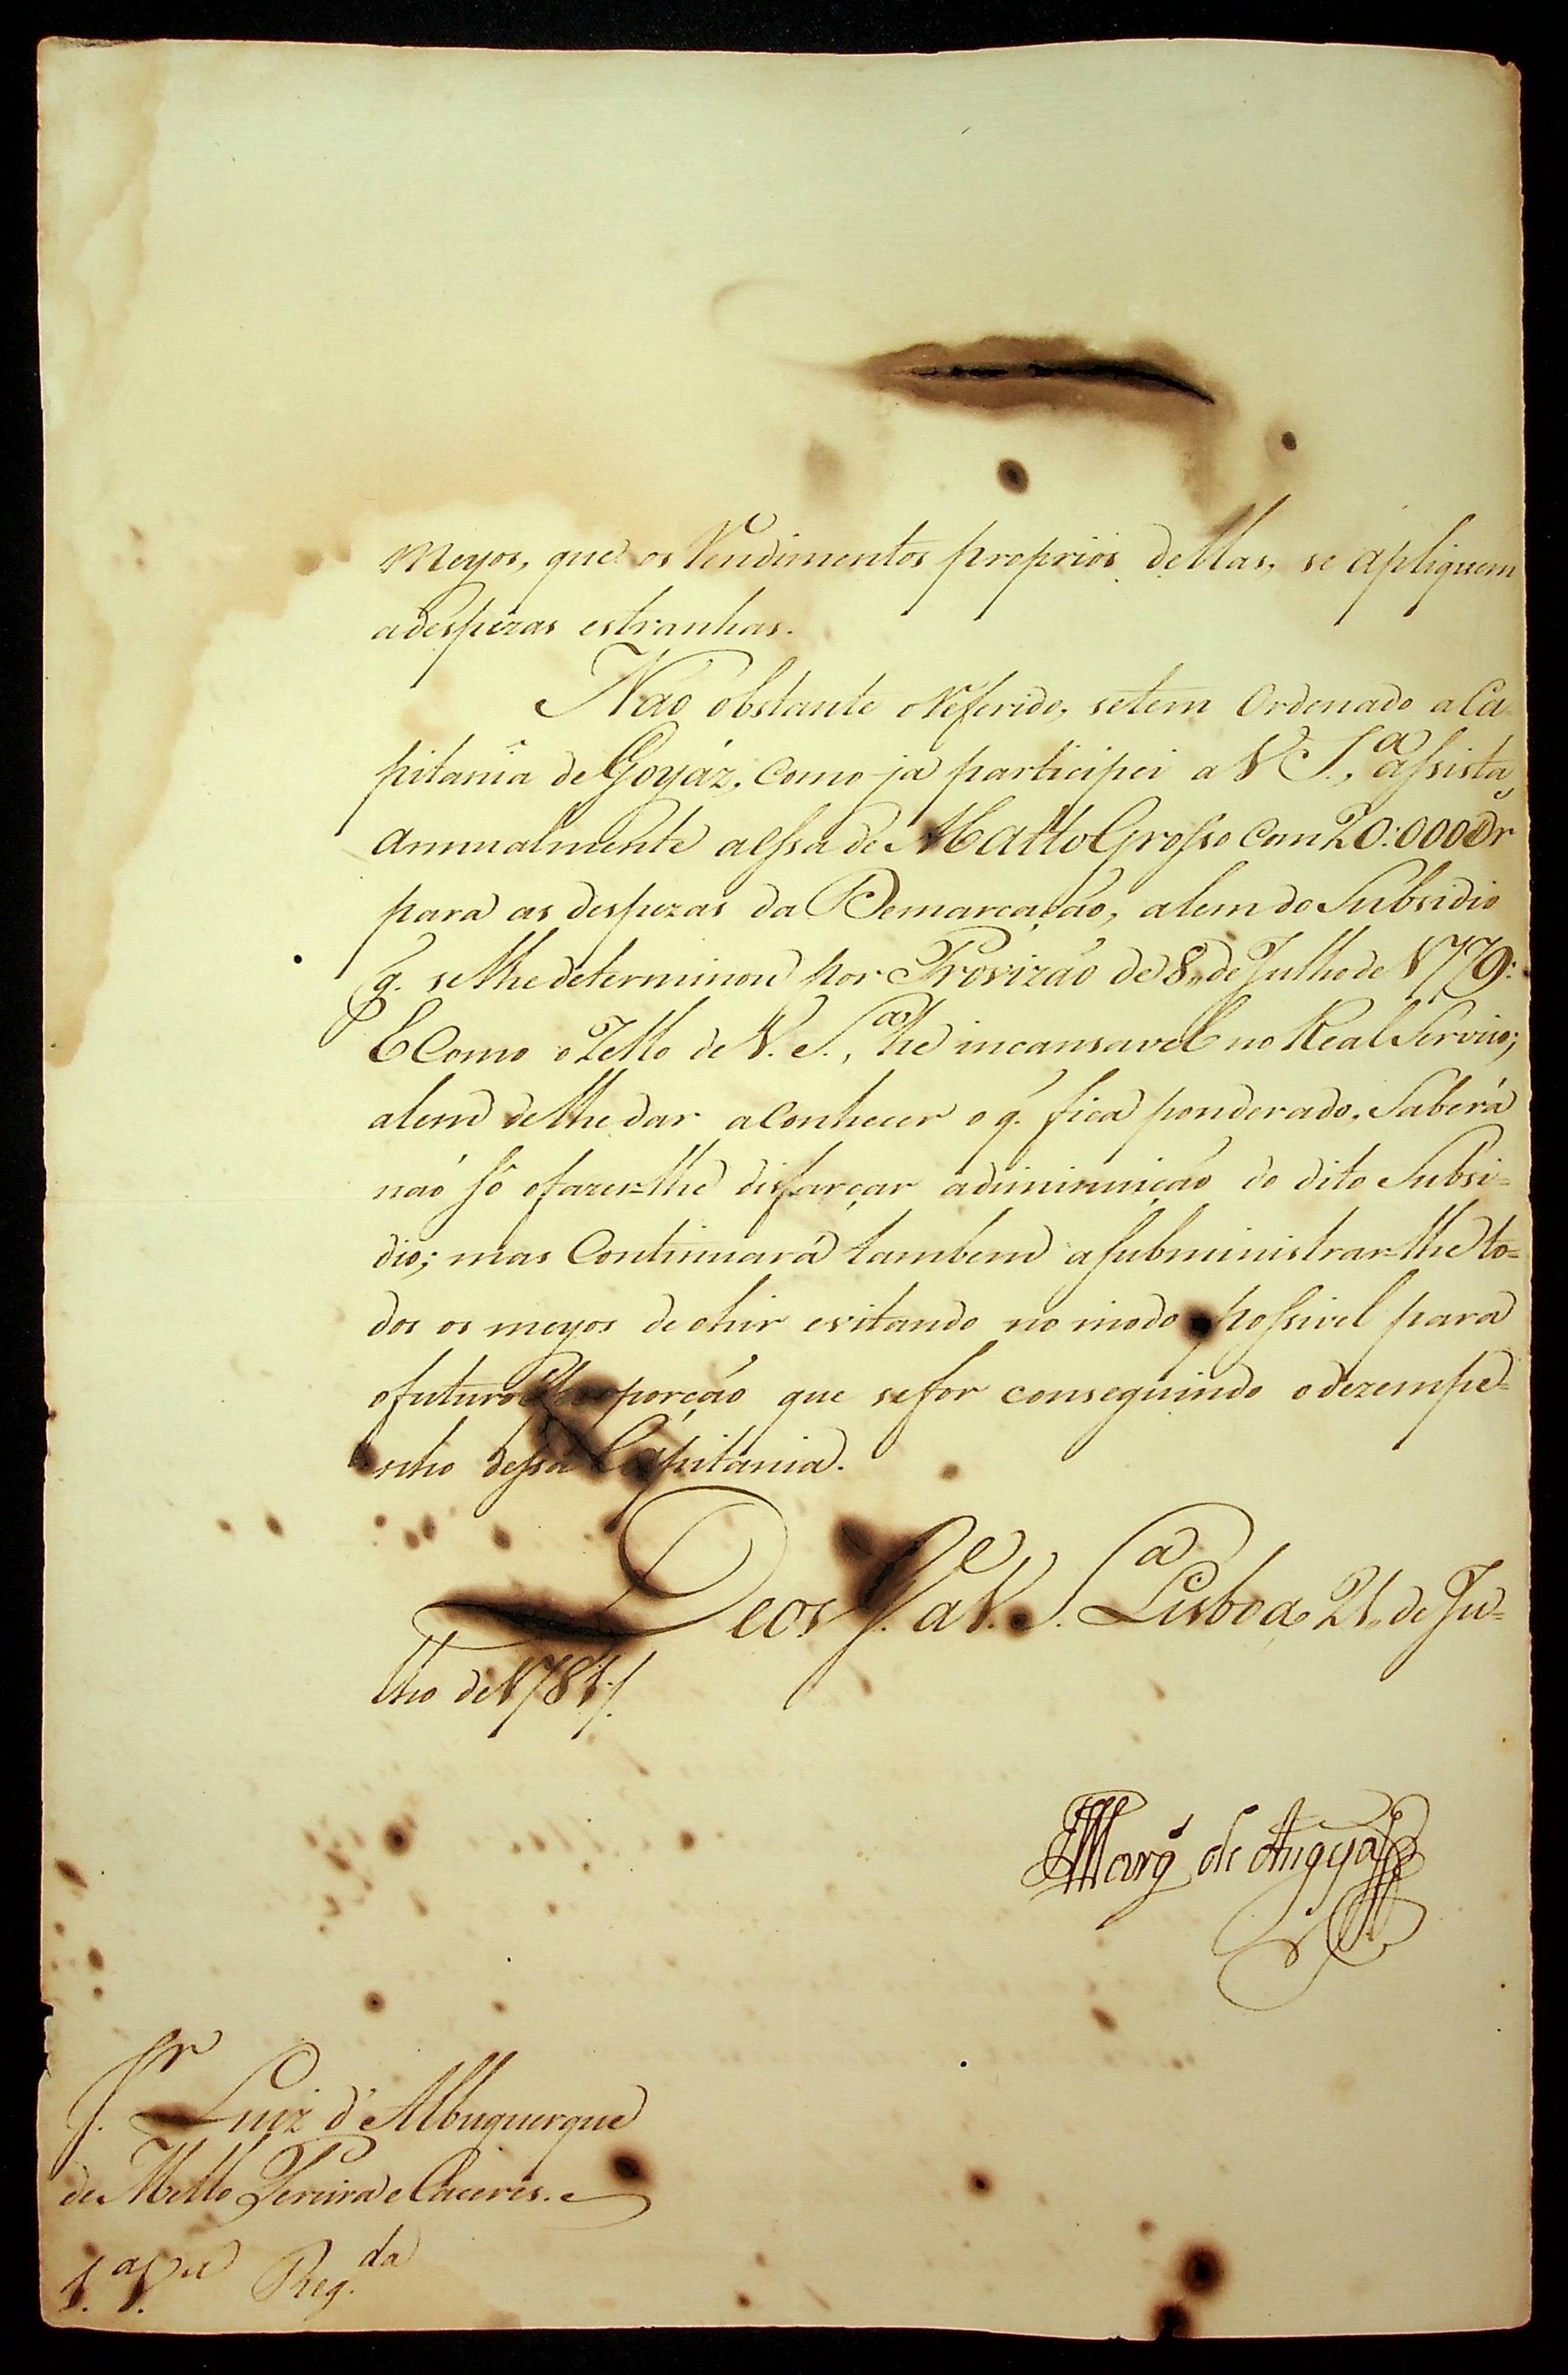 Meyos, que os Rendimentos proprios dellas, se apliquem
adespezas estranhas.
Não obstante oReferido, setem Ordenado aCa-
pitania de Goyáz, como já participei a V. S.ª, assista
annualmente aessa de MattoGrosso com 20:000 Cr
para as despezas da Demarcação, alem do Subsidio
q. selhe determinou por Provizão de 8,, de Julho de 1779:
E Como oZello de V. S.ª, he incansavel no Real Serviço;
alem delhe dar aConhecer o q. fica ponderado, Saberá
não só ofazer=lhe disfarçar adiminuição do dito Subsi=
dio; mas Continuará tambem aSubministrar=lhe to=
dos os meyos de ohir evitando no modo possivel para
ofuturo á proporção que sefor conseguindo odezempe=
nho dessa Capitania.
Deos g.e a V. S.ª Lisboa, 21,, de Ju=
lho de 1781,,/.
Marq de Angeja
S.r Luiz d'Albuquerque
de Mello Pereira e Caceres.
1.ª V.ª Reg.da